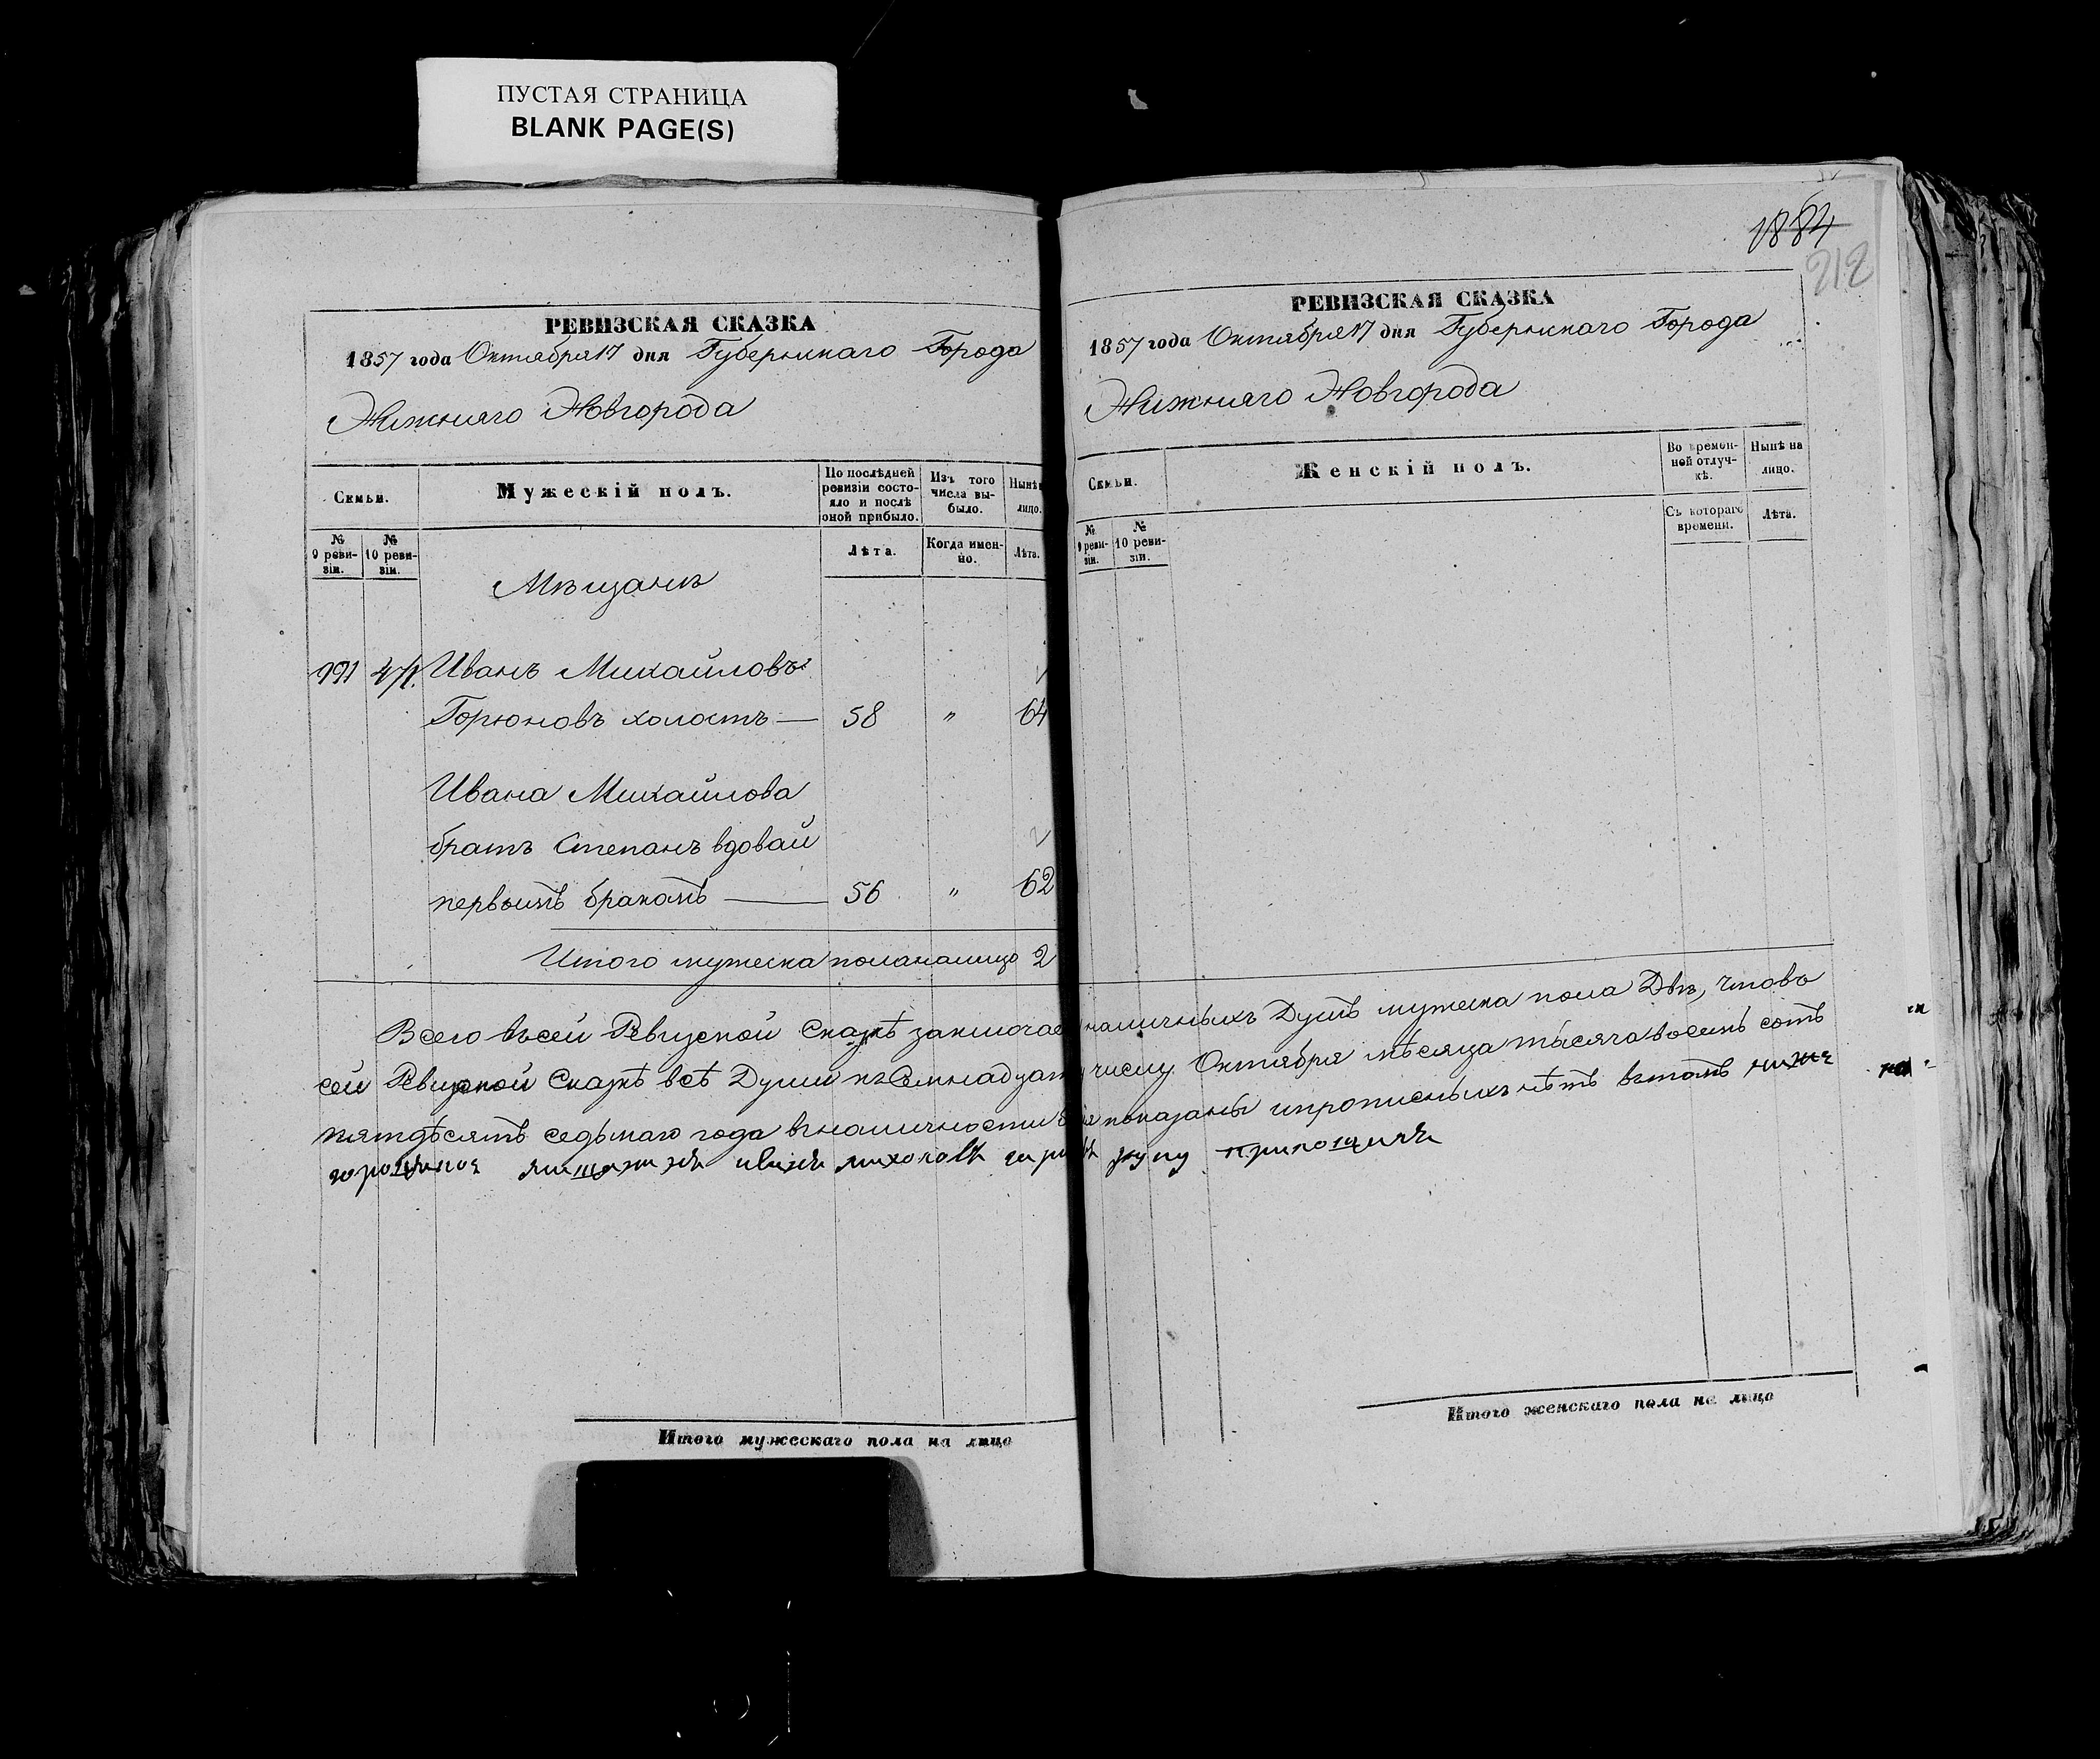 ПУСТАЯ СТРАНИЦА
BLANK PAGE(S)
РЕВИЗСКАЯ СКАЗКА
1857 года Октября 17 дня Губернскаго Города
Нижняго Новгорода
Семьи.
Мужескій полъ.
По послѣдней ревизіи состояло и послѣ оной прибыло.
Изъ того числа выбыло.
Нынѣ
лицо.
№ 9 ревизіи.
№ 10 ревизіи.
Лѣта.
Когда именно.
Лѣта.
Мѣщанъ
991
Иванъ Михайловъ
Горюновъ холостъ — 58 " 64
Ивана Михайлова
братъ Степанъ вдовай
первымъ бракомъ — 56 " 62
Итого мужеска пола налицо 2
Итого мужескаго пола на лицо
1884
212
РЕВИЗСКАЯ СКАЗКА
1857 года Октября 17 дня Губернскаго Города
Нижняго Новгорода
Семьи.
Женскій полъ.
Во временной отлучкѣ.
Нынѣ на лицо.
№ 9 ревизіи.
№ 10 ревизіи.
Съ котораго времени.
Лѣта.
Всего въ сей Ревизской Сказкѣ заключае наличныхъ Душъ мужеска пола Двѣ, что въ
сей Ревизской Сказкѣ всѣ Души къ Семнадцат числу Октября мѣсяца тысяча восемь сотъ
пятдѣсятъ седьмаго года в наличности показаны и прописныхъ нѣтъ вътомъ
руку приложилъ
Итого женскаго пола на лицо